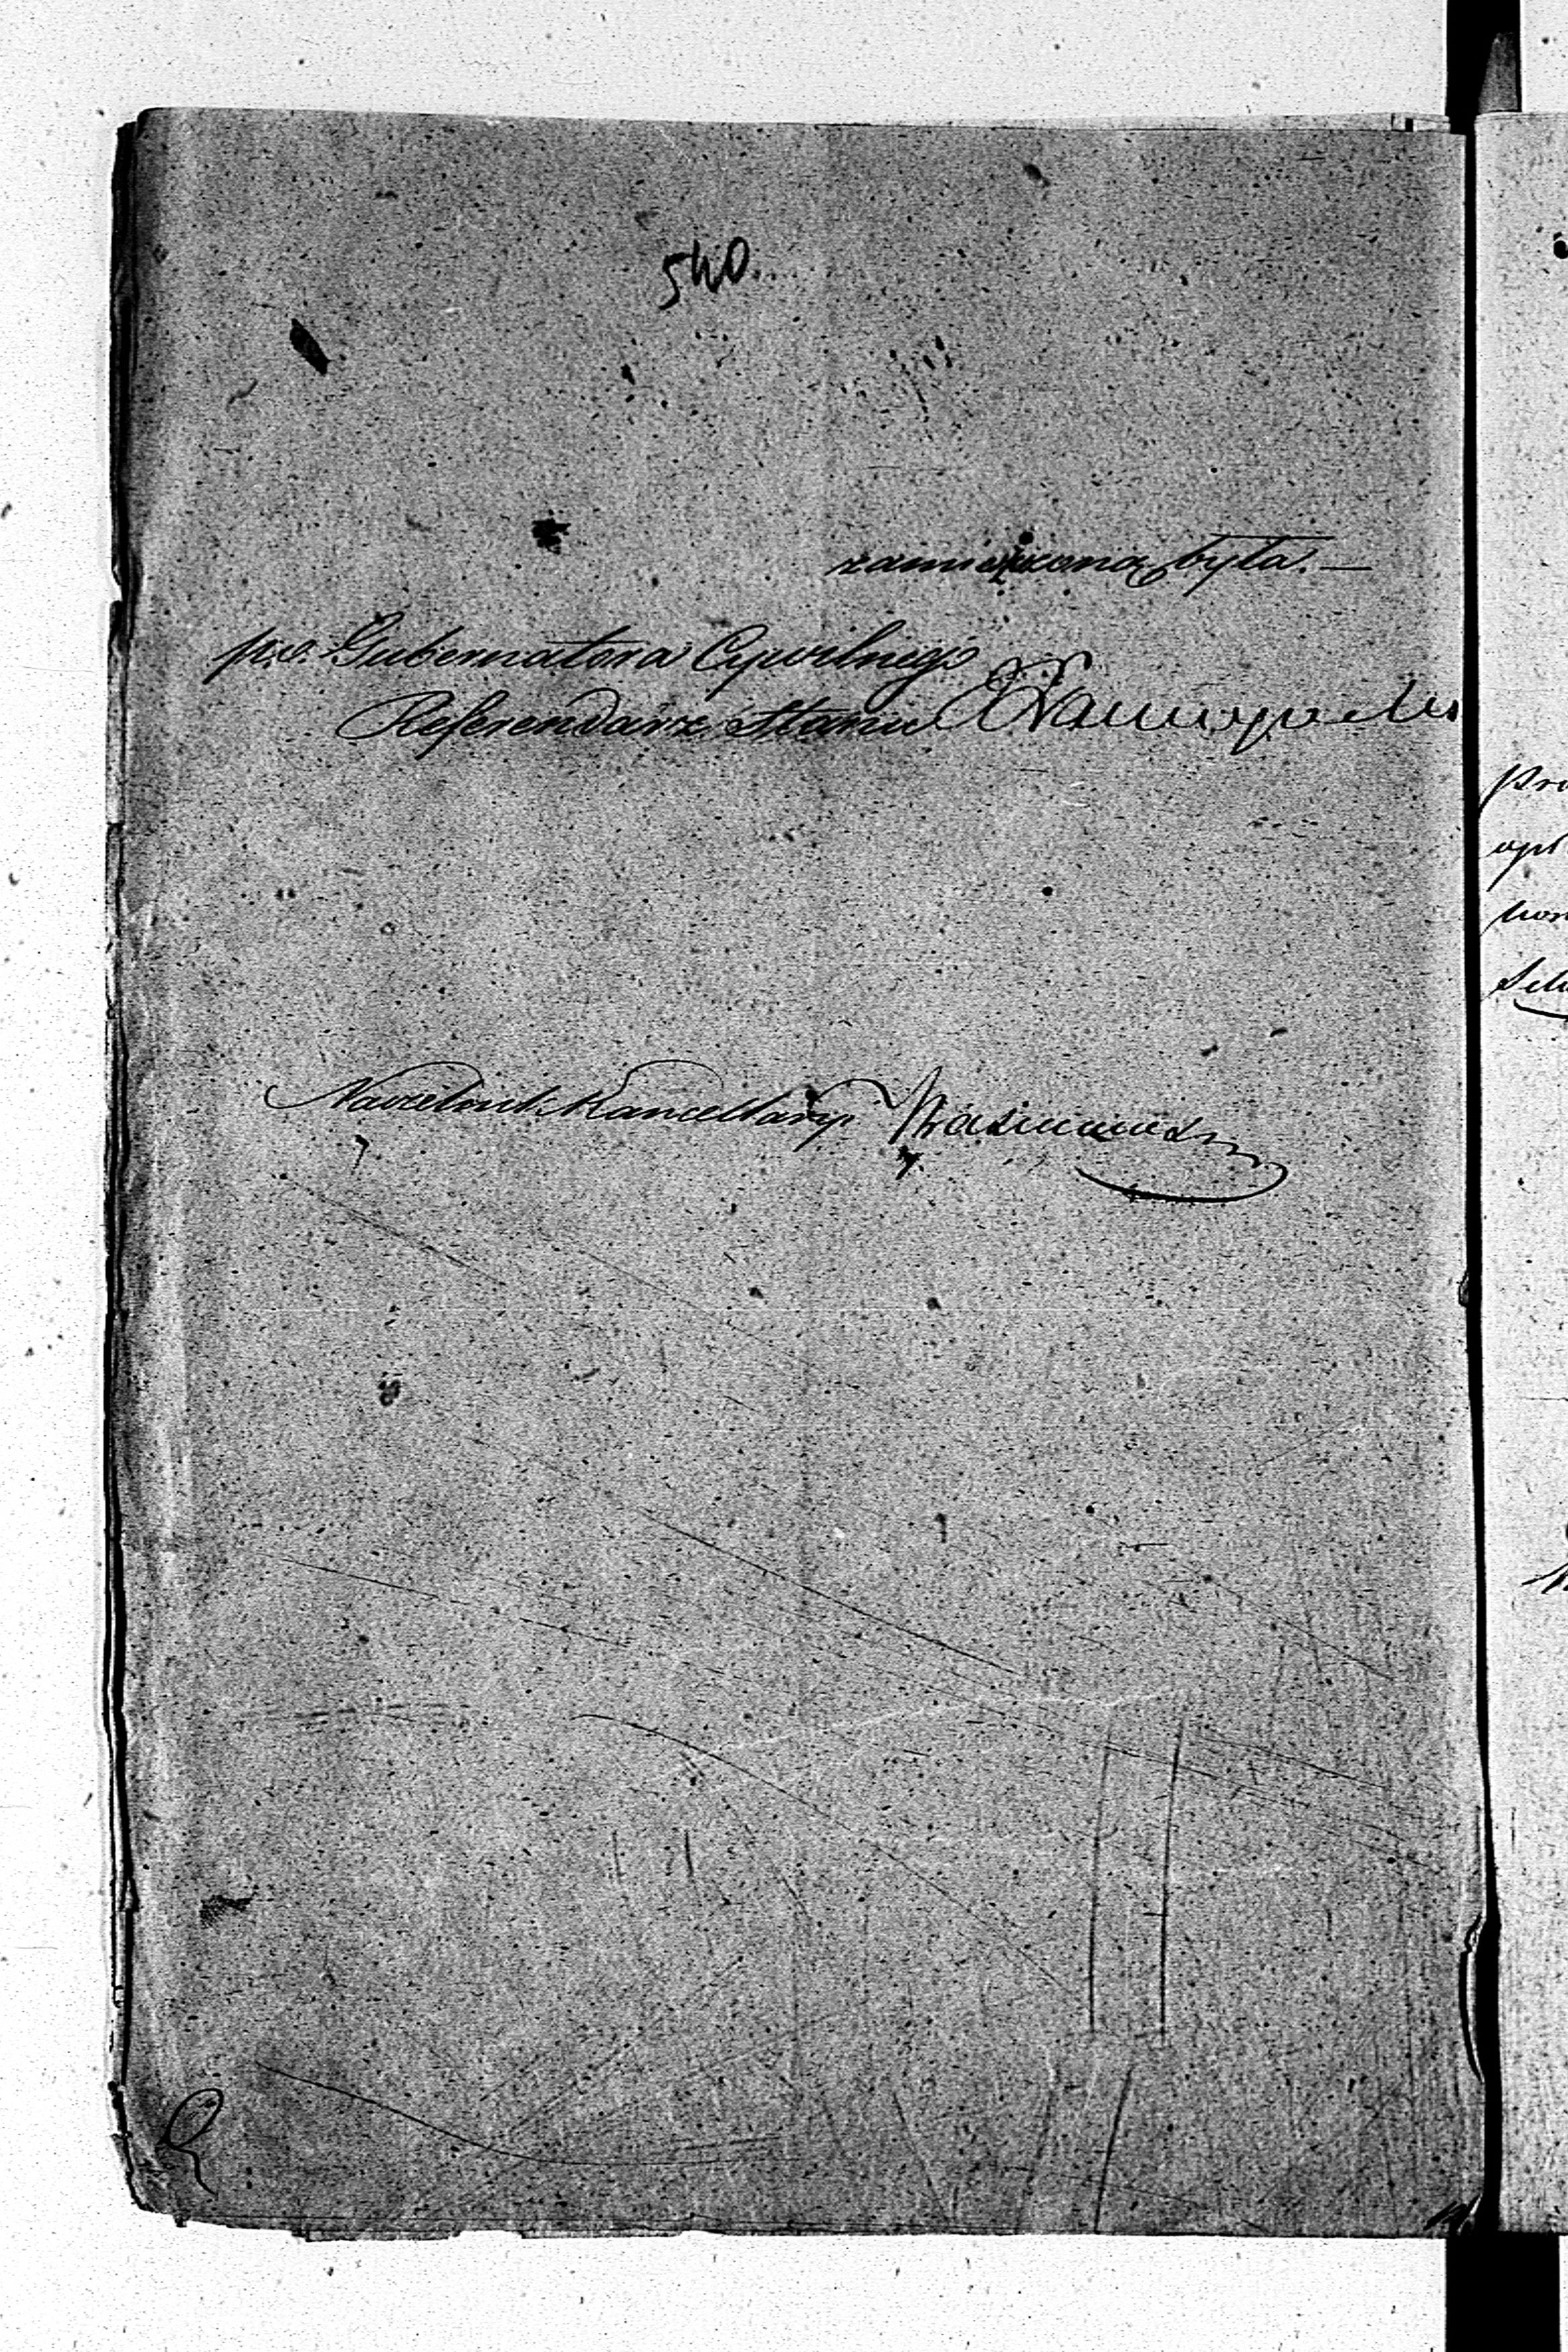 540.
zamieszczoną była. —
p.o. Gubernatora Cywilnego
Referendarz Stanu
Naczelnik Kancellaryi
pro